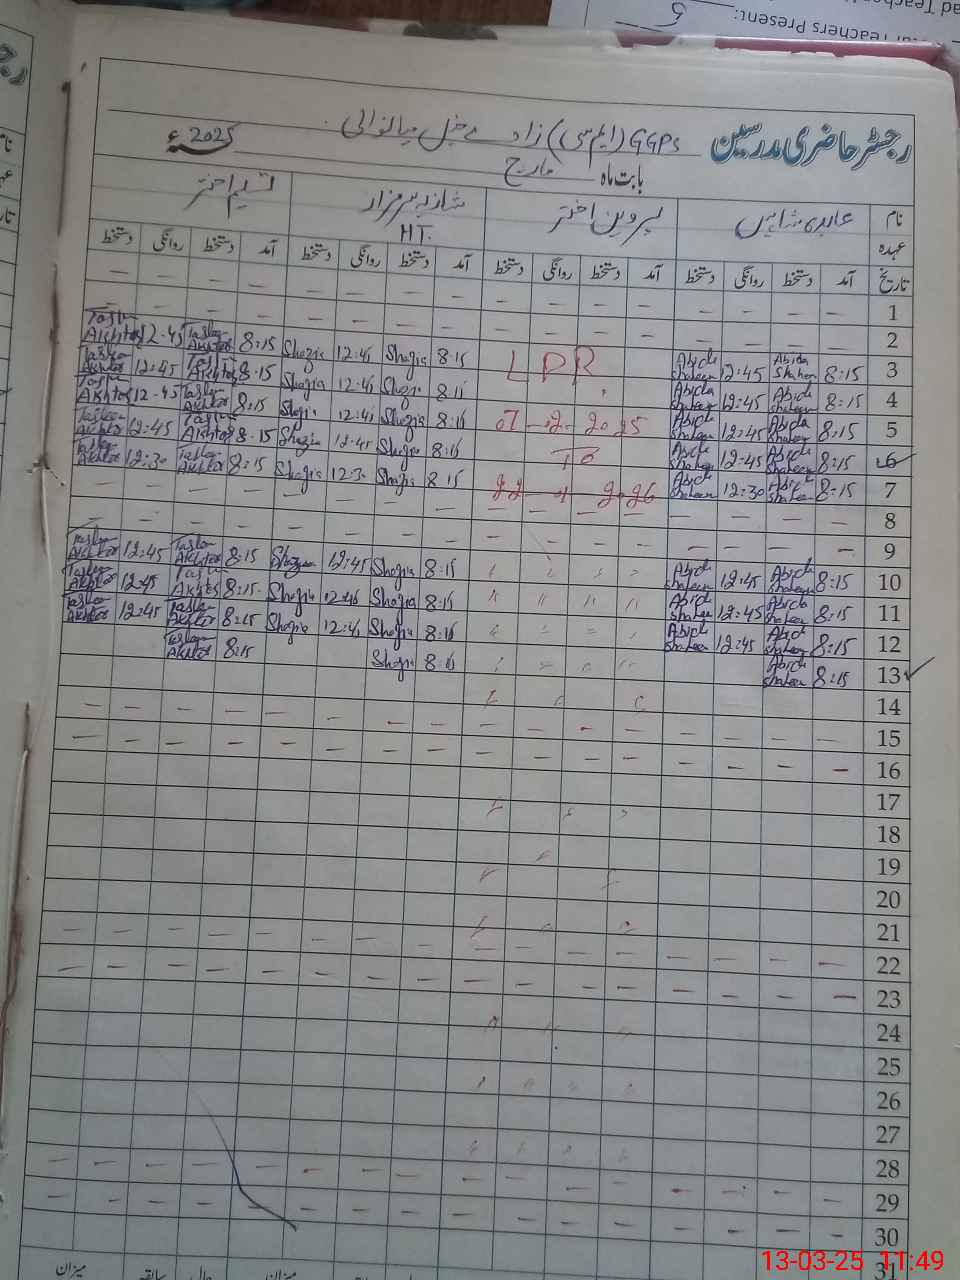 Teachers Present: 6
رجسٹر حاضری مدرسین
GGPS (ایم سی) زادے خیل میانوالی
بابت ماہ مارچ 2025ء
نام عابدہ شاہین پروین اختر شازیہ سرفراز تسلیم اختر
عہدہ H.T.
تاریخ آمد دستخط روانگی دستخط آمد دستخط روانگی دستخط آمد دستخط روانگی دستخط آمد دستخط روانگی دستخط
1 — — — — — — — — — — — —
2 — — — — — — — — — — — —
3 8:15 Abida Shaheen 12:45 Abida Shaheen LPR 8:15 Shazia 12:45 Shazia 8:15 Taslem Akhtar 12-45 Taslem Akhtar
4 8:15 Abida Shaheen 12:45 Abida Shaheen 8:15 Shazia 12:45 Shazia 8:15 Taslem Akhtar 12:45 Taslem Akhtar
5 8:15 Abida Shaheen 12:45 Abida Shaheen 2025 8:15 Shazia 12:45 Shazia 8:15 Taslem Akhtar 12-45 Taslem Akhtar
6 8:15 Abida Shaheen 12:45 Abida Shaheen To 8:15 Shazia 12:45 Shazia 8:15 Taslem Akhtar 12:45 Taslem Akhtar
7 8:15 Abida Shaheen 12:30 Abida Shaheen 2026 8:15 Shazia 12:30 Shazia 8:15 Taslem Akhtar 12:30 Taslem Akhtar
8 — — — — — — — — — — — —
9 — — — — — — — — — — — —
10 8:15 Abida Shaheen 12:45 Abida Shaheen 8:15 Shazia 12:45 Shazia 8:15 Taslem Akhtar 12:45 Taslem Akhtar
11 8:15 Abida Shaheen 12:45 Abida Shaheen 8:15 Shazia 12:45 Shazia 8:15 Taslem Akhtar 12:45 Taslem Akhtar
12 8:15 Abida Shaheen 12:45 Abida Shaheen 8:15 Shazia 12:45 Shazia 8:15 Taslem Akhtar 12:45 Taslem Akhtar
13 8:15 Abida Shaheen 8:15 Shazia 8:15 Taslem Akhtar
14
15 — — — — — — — — — — — —
16 — — — — — — — — — — — —
17
18
19
20
21
22 — — — — — — — — — — — —
23 — — — — — — — — — — — —
24
25
26
27
28
29 — — — — — — — — — — — —
30 — — — — — — — — — — — —
31
میزان حال سابقہ میزان
13-03-25 11:49